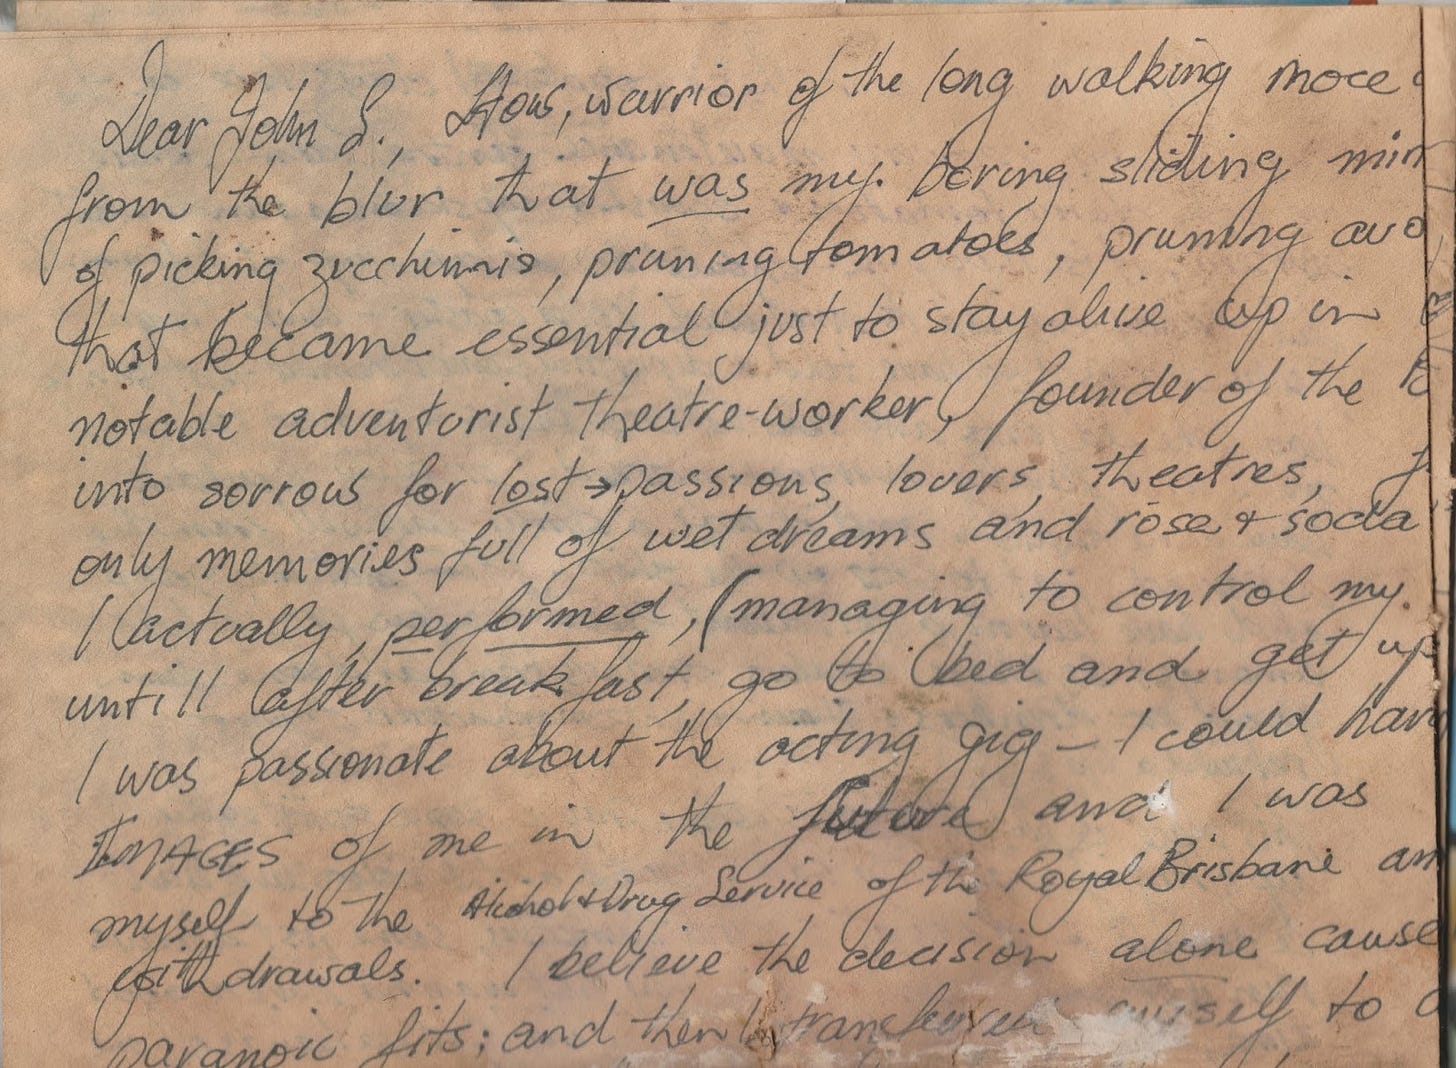 Dear John S., How, warrior of the long walking
from the blur that was my boring sliding
of picking zucchinnis, pruning tomatoes, pruning
that became essential just to stay alive up in
notable adventurist theatre-worker, founder of the
into sorrows for lost → passions, lovers, theatres,
only memories full of wet dreams and rose + soda
I actually performed, (managing to control my
untill after breakfast, go to bed and get up
I was passionate about the acting gig – I could
IMAGES of me in the future and I was
myself to the Alcohol + Drug Service of the Royal Brisbane
withdrawals. I believe the decision alone
paranoic fits; and then I transferred myself to